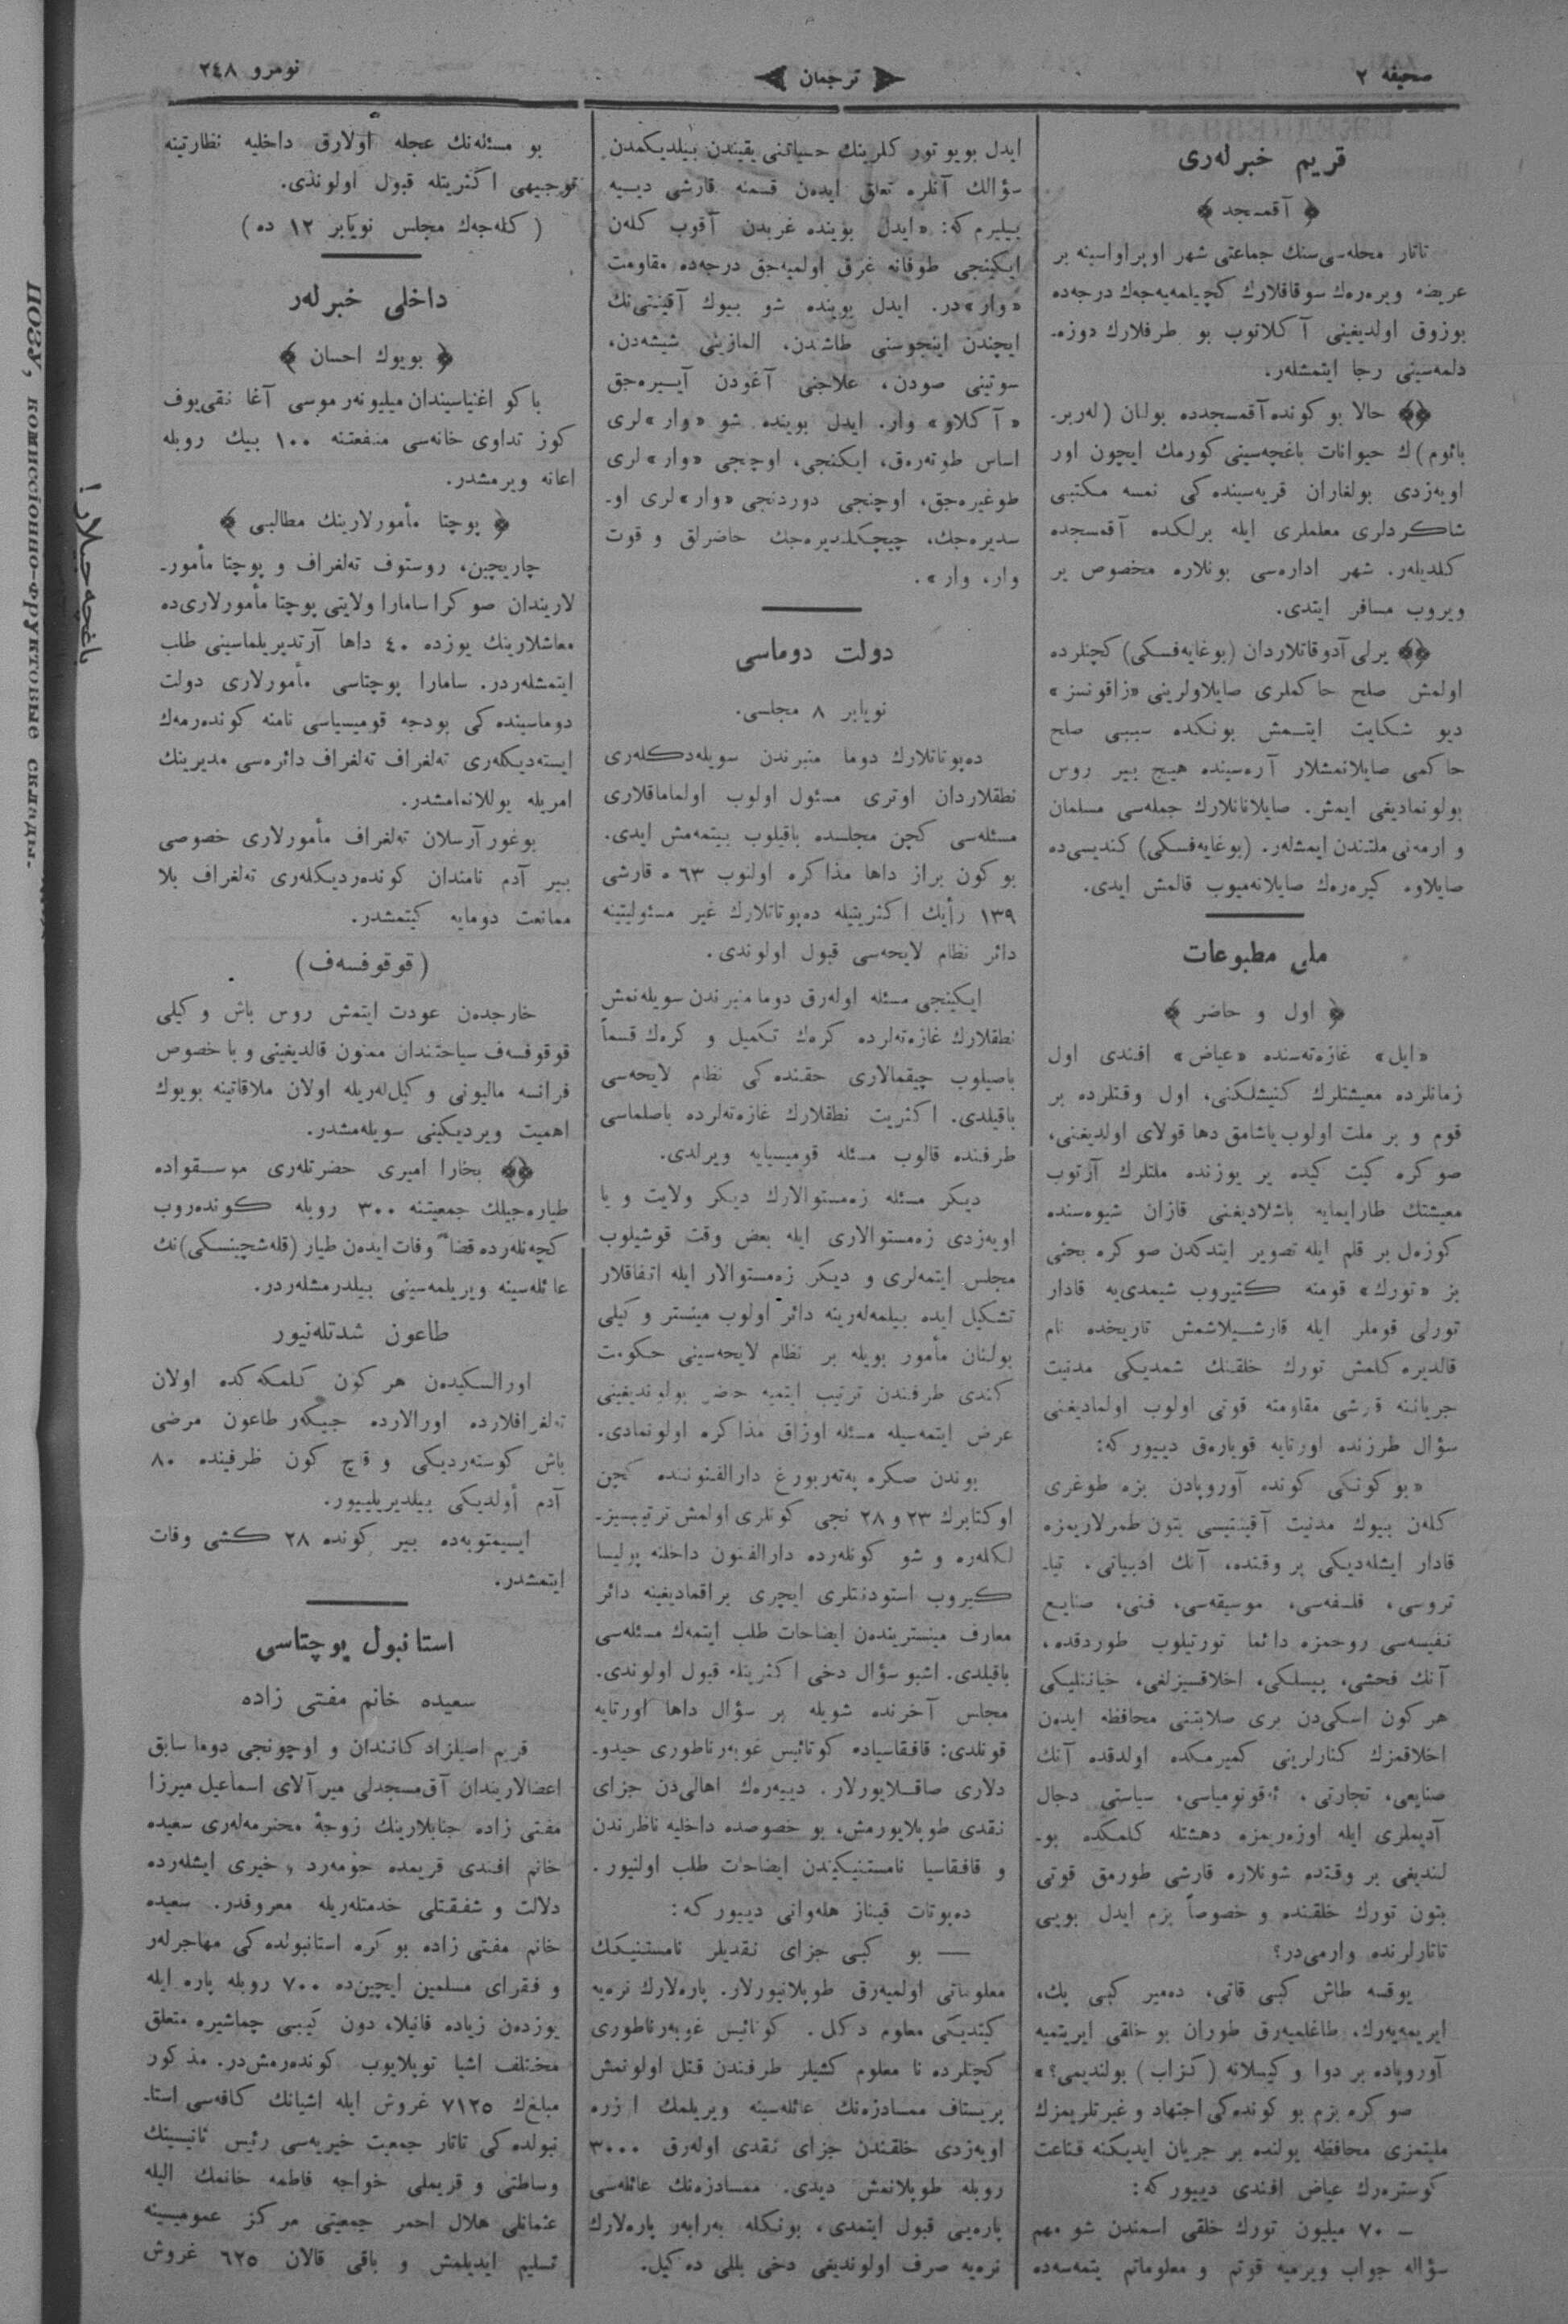 صحیفه ٢
ترجمان
نومرو ٢٤٨
قریم خبرلەری
﴿ آقمسجد ﴾
تاتار محله‌سی‌سنك جماعتی شهر اوپراواسینه بر
عریضه ویره‌رەك سوقاقلارك كچیلمه‌یه‌جەك درجه‌ده
بوزوق اولدیغینی آكلاتوب بو طرفلارك دوزه‌ـ
دلمه‌سینی رجا ایتمشلەر.
﴿﴾ حالا بو كونده آقمسجدده بولنان (له‌ربر‌ـ
بائوم)ك حیوانات باغچه‌سینی كورمك ایچون اور
اویه‌زدی بولغاران قریه‌سینده‌كی نمسه مكتبی
شاكردلری معلملری ایله برلكده آقمسجده
كلدیلەر. شهر اداره‌سی بونلاره مخصوص یر
ویروب مسافر ایتدی.
﴿﴾ یرلی آدوقاتلاردان (بوغایه‌فسكی) كچنلرده
اولمش صلح حاكملری صایلاولرینی «زاقونسز»
دیو شكایت ایتـمش بونكده سببی صلح
حاكمی صایلانمشلار آره‌سینده هیچ بیر روس
بولونمادیغی ایمش. صایلانانلارك جمله‌سی مسلمان
و ارمه‌نی ملتندن ایمشلەر. (بوغایه‌فسكی) كندیسی‌ده
صایلاوه كیره‌رەك صایلانه‌میوب قالمش ایدی.
ملی مطبوعات
﴿ اول و حاضر ﴾
«ایل» غازه‌ته‌سنده «عیاض» افندی اول
زمانلرده معیشتلرك كنیشلكنی، اول وقتلرده بر
قوم و بر ملت اولوب یاشامق دها قولای اولدیغنی،
صوكره كیت كیده یر یوزنده ملتلرك آرتوب
معیشتك طارایمایه باشلادیغنی قازان شیوه‌سنده
كوزەل بر قلم ایله تصویر ایتدكدن صوكره بحثی
بز «تورك» قومنه كتیروب شیمدی‌یه قادار
تورلی قوملر ایله قارشـیلاشمش تاریخده نام
قالدیره كلمش تورك خلقنك شمدیكی مدنیت
جریاننه قارشی مقاومته قوتی اولوب اولمادیغنی
سؤال طرزنده اورتایه قویارەق دییور كه:
«بو كونكی كونده آوروپادن بزه طوغری
كلەن بیوك مدنیت آقینتیسی بتون طمرلاریمزه
قادار ایشله‌دیكی بر وقتده، آنك ادبیاتی، تیا‌ـ
تروسی، فلسفه‌سی، موسیقه‌سی، فنی، صنایع
نفیسه‌سی روحمزه دائما تورتیلوب طوردقده،
آنك فحشی، پیسلكی، اخلاقسیزلغی، خیانتلیكی
هر كون اسكی‌دن بری صلابتنی محافظه ایدەن
اخلاقمزك كنارلرینی كمیرمكده اولدقده آنك
صنایعی، تجارتی، ئه‌قونومیاسی، سیاستی دجال
آدیملری ایله اوزه‌ریمزه دهشتله كلمكده بو‌ـ
لندیغی بر وقتده شونلاره قارشی طورمق قوتی
بتون تورك خلقنده و خصوصاً بزم ایدل بویی
تاتارلرنده وارمی‌در؟
یوقسه طاش كبی قاتی، ده‌میر كبی پك،
ایریمه‌یه‌رك، طاغلمیه‌رق طوران بو خلقی ایریتمیه
آوروپاده بر دوا و كیسلاته (كزاب) بولندیمی؟»
صوكره بزم بو كونده‌كی اجتهاد و غیرتلریمزك
ملیتمزی محافظه یولنده بر جریان ایدیكنه قناعت
كوستره‌رك عیاض افندی دییور كه:
ـ ٧٠ میلیون تورك خلقی اسمندن شو مهم
سؤاله جواب ویرمیه قوتم و معلوماتم یتمه‌سه‌ده
ایدل بویو تور كلرینك حسیاتنی یقیندن بیلدیكمدن
سؤالك آنلره تعلق ایدەن قسمنه قارشی دییه
بیلیرم كه: «ایدل بوینده غربدن آقوب كلەن
ایكینجی طوفانه غرق اولمیه‌جق درجه‌ده مقاومت
«وار»در. ایدل بوینده شو بیوك آقینتی‌نك
ایچندن اینجوسنی طاشدن، الماسینی شیشه‌دن،
سوتینی صودن، علاجنی آغودن آییره‌جق
«آكلاو» وار. ایدل بوینده شو «وار»لری
اساس طوته‌رەق، ایكنجی، اوچنجی «وار»لری
طوغیره‌جق، اوچنجی دوردنجی «وار»لری او‌ـ
سدیره‌جك، چیچكلدیره‌جك حاضرلق و قوت
وار، وار».
دولت دوماسی
نویابر ٨ مجلسی.
ده‌پوتاتلارك دوما منبرندن سویله‌دكلەری
نطقلاردان اوتری مسئول اولوب اولماماقلاری
مسئله‌سی كچن مجلسده باقیلوب بیتمه‌مش ایدی.
بو كون براز داها مذاكره اولنوب ٦٣ ه قارشی
١٣٩ رأیك اكثریتیله ده‌پوتاتلارك غیر مسئولیتینه
دائر نظام لایحه‌سی قبول اولوندی.
ایكینجی مسئله اوله‌رق دوما منبرندن سویله‌نمش
نطقلارك غازه‌ته‌لرده كرەك تكمیل و كرەك قسماً
باصیلوب چیقمالاری حقنده‌كی نظام لایحه‌سی
باقیلدی. اكثریت نطقلارك غازه‌ته‌لرده باصلماسی
طرفنده قالوب مسئله قومیسیایه ویرلدی.
دیكر مسئله زه‌مستوالارك دیكر ولایت و یا
اویه‌زدی زه‌مستوالاری ایله بعض وقت قوشیلوب
مجلس ایتمه‌لری و دیكر زه‌مستوالار ایله اتفاقلار
تشكیل ایده بیلمه‌لەرینه دائر اولوب مینستر وكیلی
بولنان مأمور بویله بر نظام لایحه‌سینی حكومت
كندی طرفندن ترتیب ایتمیه حاضر بولوندیغینی
عرض ایتمه‌سیله مسئله اوزاق مذاكره اولونمادی.
بوندن صكره په‌تەربورغ دارالفنوننده كچن
اوكتابرك ٢٣ و ٢٨ نجی كونلری اولمش ترتیبسیز‌ـ
لكلەره و شو كونلەرده دارالفنون داخلنه پولیسا
كیروب استودنتلری ایچری براقمادیغینه دائر
معارف مینستریندەن ایضاحات طلب ایتمەك مسئله‌سی
باقیلدی. اشبو سؤال دخی اكثریتله قبول اولوندی.
مجلس آخرنده شویله بر سؤال داها اورتایه
قونلدی: قافقاسیاده كوتائیس غوبەرناطوری حیدو‌ـ
دلاری صاقـلایورلار. دییه‌رەك اهالی‌دن جزای
نقدی طوپلایورمش، بو خصوصده داخلیه ناظرندن
و قافقاسیا نامستنیكیندن ایضاحات طلب اولنیور.
ده‌پوتات قیناز هله‌وانی دییور كه:
— بو كبی جزای نقدیلر نامستنیكك
معلوماتی اولمیه‌رق طوپلانیورلار. پاره‌لارك نره‌یه
كیتدیكی معلوم دكل. كوتائیس غوبەرناطوری
كچنلرده نا معلوم كشیلر طرفندن قتل اولونمش
پریستاف ممسادزه‌نك عائله‌سینه ویریلمك ازره
اویه‌زدی خلقندن جزای نقدی اولەرق ٣٠٠٠
روبله طوپلانمش دیدی. ممسادزه‌نك عائله‌سی
پاره‌یی قبول ایتمدی، بونكله به‌رابەر پاره‌لارك
نره‌یه صرف اولوندیغی دخی بللی ده‌كیل.
بو مسئله‌نك عجله اولارق داخلیه نظارتینه
توجیهی اكثریتله قبول اولوندی.
(كله‌جەك مجلس نویابر ١٢ ده)
داخلی خبرلەر
﴿ بویوك احسان ﴾
باكو اغنیاسیندان میلیونەر موسی آغا نقی‌یوف
كوز تداوی خانه‌سی منفعتنه ١٠٠ بیك روبله
اعانه ویرمشدر.
﴿ پوچتا مأمورلارینك مطالبی ﴾
چاریچین، روستوف تەلغراف و پوچتا مأمور‌ـ
لاریندان صوكرا سامارا ولایتی پوچتا مأمورلاری‌ده
معاشلارینك یوزده ٤٠ داها آرتدیریلماسینی طلب
ایتمشلەردر. سامارا پوچتاسی مأمورلاری دولت
دوماسینده‌كی بودجه قومیسیاسی نامنه كوندەرمەك
ایسته‌دیكلەری تەلغراف تەلغراف دائره‌سی مدیرینك
امریله یوللانمامشدر.
بوغور آرسلان تەلغراف مأمورلاری خصوصی
بیر آدم نامندان كوندەردیكلەری تەلغراف بلا
ممانعت دومایه كیتمشدر.
(قوقوفسەف)
خارجدەن عودت ایتمش روس باش وكیلی
قوقوفسەف سیاحتندان ممنون قالدیغینی و با خصوص
فرانسه مالیونی وكیل‌لەریله اولان ملاقاتینه بویوك
اهمیت ویردیكینی سویله‌مشدر.
﴿﴾ بخارا امیری حضرتلەری موسـقواده
طیاره‌جیلك جمعیتنه ٣٠٠ روبله كوندەروب
كچه‌نلەرده قضاً وفات ایدەن طیار (قله‌شچینسكی)نك
عائله‌سینه ویریلمه‌سینی بیلدرمشلەردر.
طاعون شدتله‌نیور
اورالسكیدەن هر كون كلمكه‌كده اولان
تەلغرافلارده اورالارده جیكەر طاعون مرضی
باش كوستەردیكی و قاچ كون ظرفینده ٨٠
آدم أولدیكی بیلدیریلییور.
ایسیمتوبه‌ده بیر كونده ٢٨ كشی وفات
ایتمشدر.
استانبول پوچتاسی
سعیده خانم مفتی زاده
قریم اصلزادكانندان و اوچونجی دوما سابق
اعضالاریندان آق‌مسجدلی میر آلای اسماعیل میرزا
مفتی زاده جنابلارینك زوجۀ محترمه‌لەری سعیده
خانم افندی قریمده جومەرد و خیری ایشلەرده
دلالت و شفقتلی خدمتلەریله معروفدر. سعیده
خانم مفتی زاده بو كره استانبولده‌كی مهاجرلەر
و فقرای مسلمین ایچین‌ده ٧٠٠ روبله پاره ایله
یوزدەن زیاده فانیلا، دون كیبی چماشیره متعلق
مختلف اشیا توپلایوب كوندەرمش‌در. مذكور
مبلغك ٧١٢٥ غروش ایله اشیانك كافه‌سی استا‌ـ
نبولده‌كی تاتار جمعیت خیریه‌سی رئیس ثانیسینك
وساطتی و قریملی خواجه فاطمه خانمك الیله
عثمانلی هلال احمر جمعیتی مركز عمومیسینه
تسلیم ایدیلمش و باقی قالان ٦٢٥ غروش
باغچه‌جیلار!
коммиссіонно-фруктовые склады.